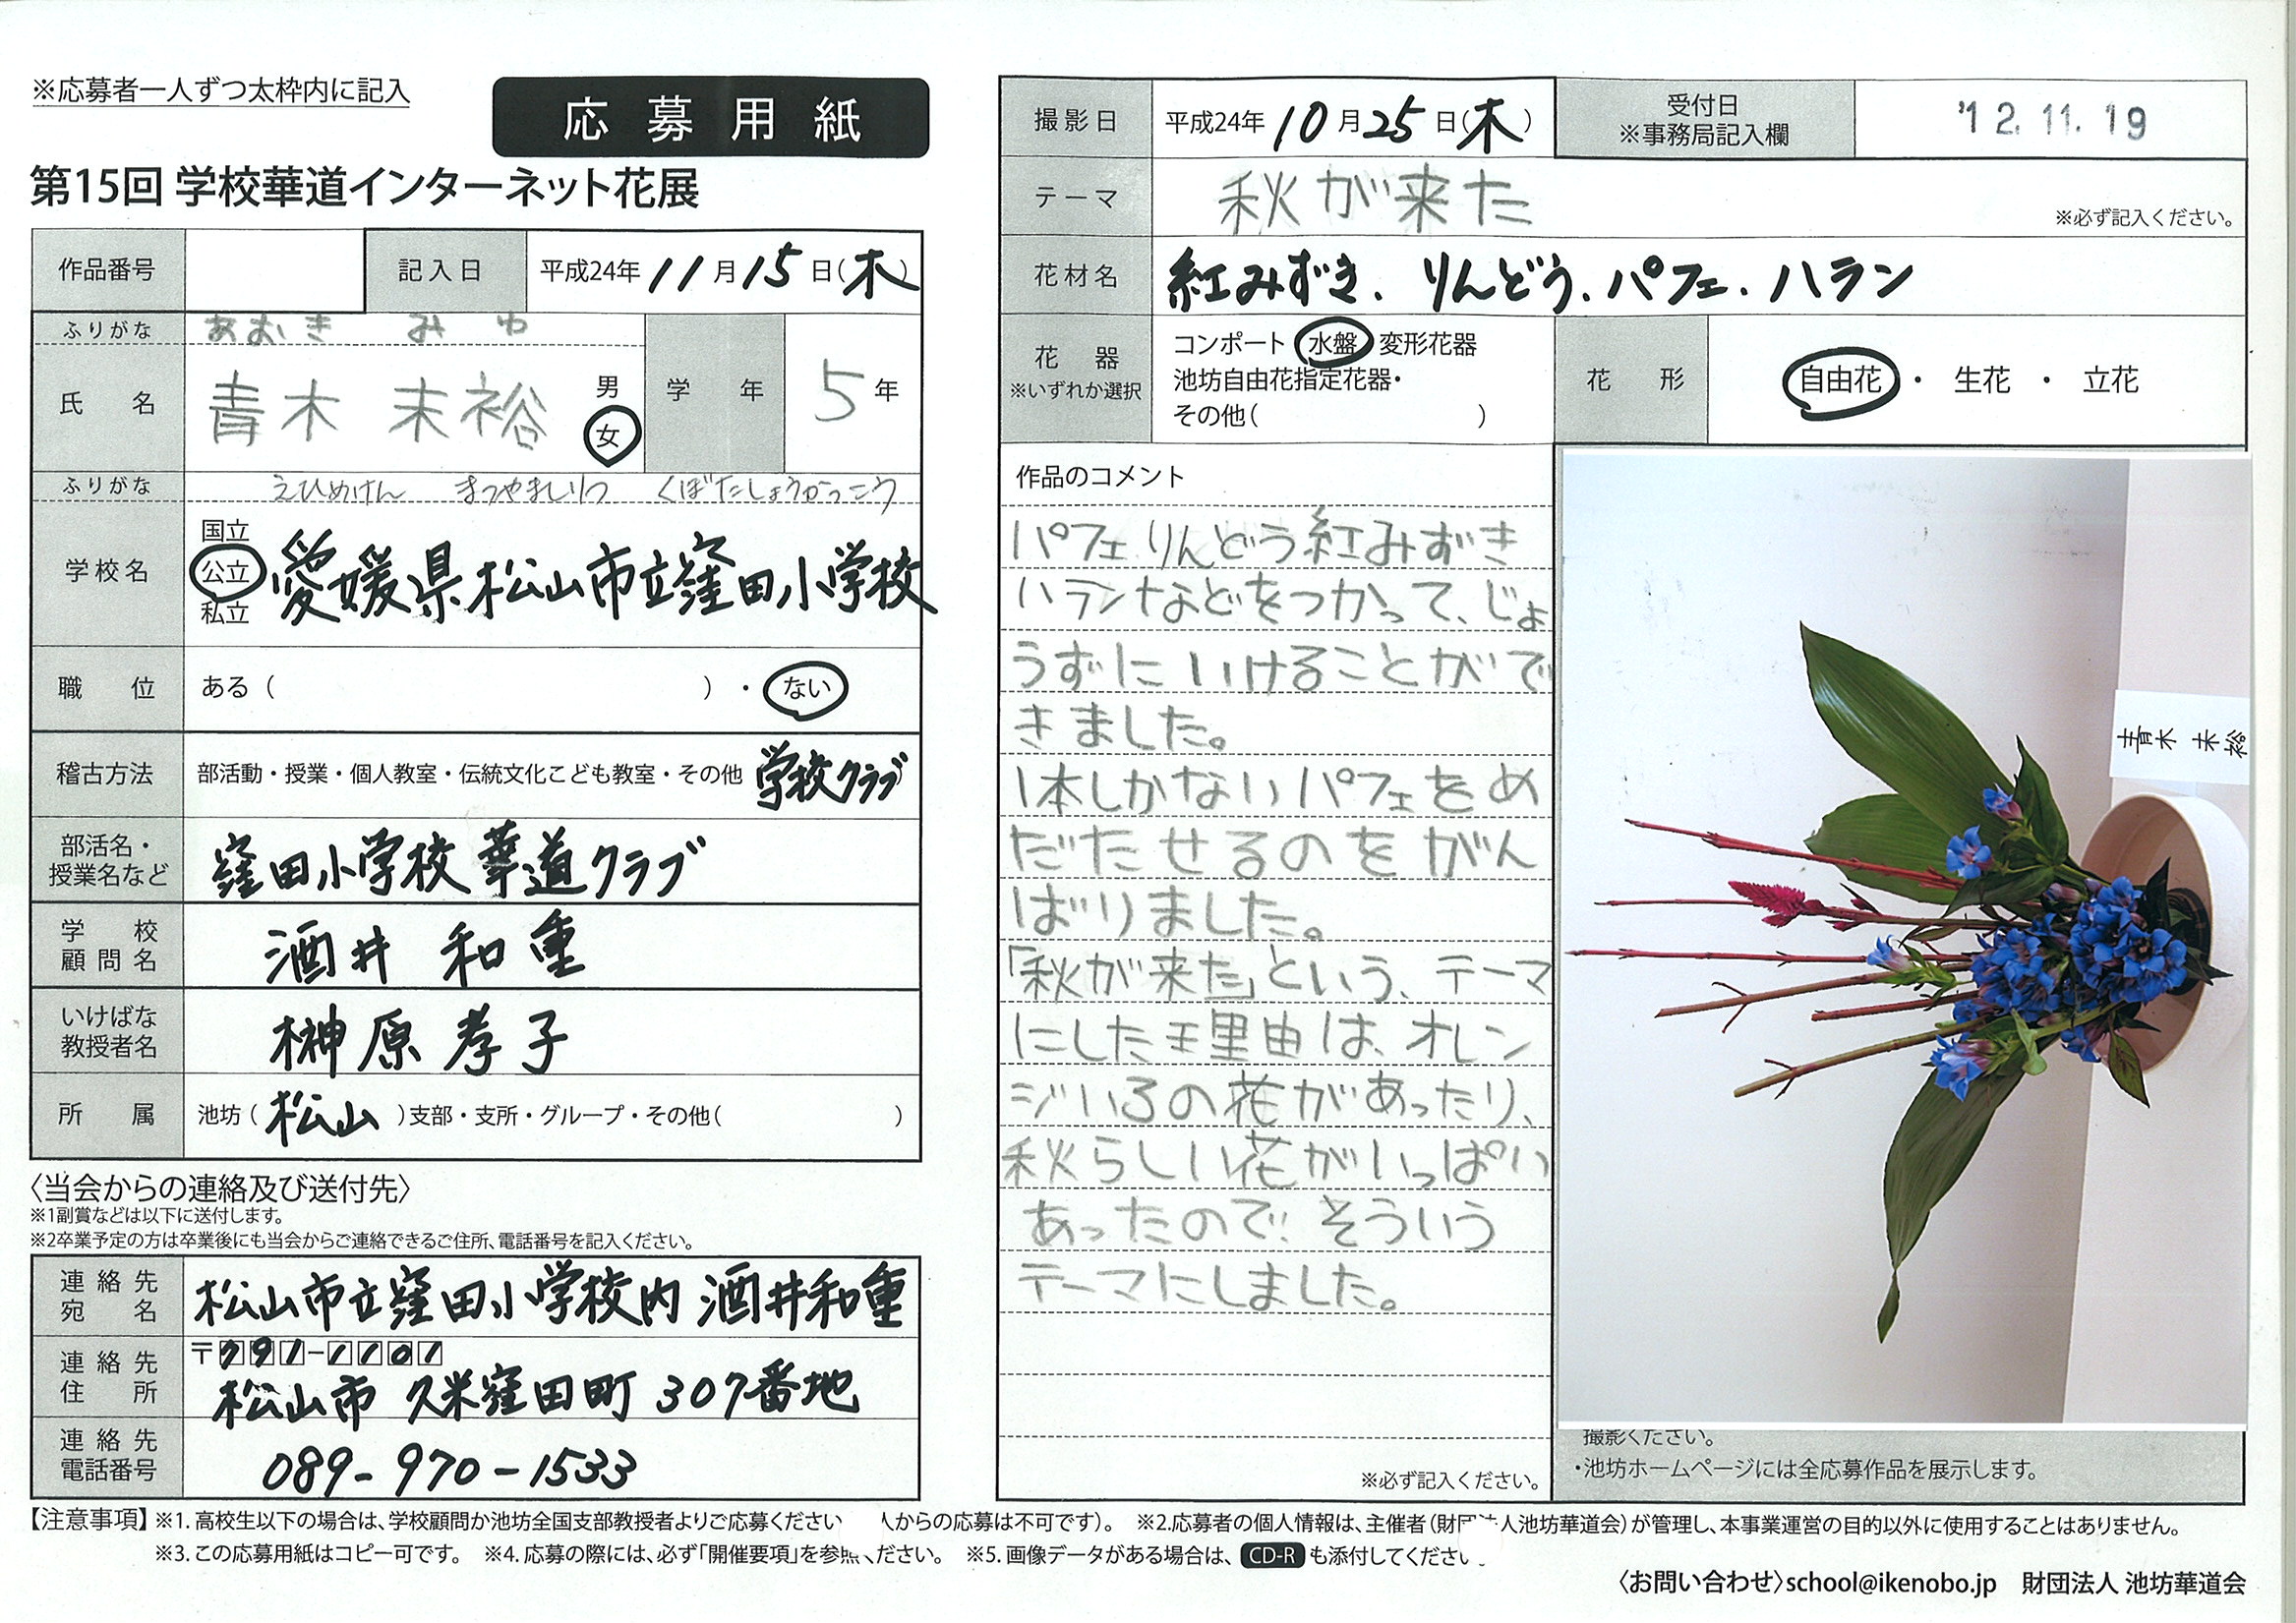 ※応募者一人ずつ太枠内に記入
応募用紙
第15回 学校華道インターネット花展
作品番号
記入日 平成24年11月15日(木)
ふりがな あおき みゆ
氏名 青木 未裕 男 女
学年 5年
ふりがな えひめけん まつやましりつ くぼたしょうがっこう
学校名 国立 公立 私立 愛媛県松山市立窪田小学校
職位 ある( )・ない
稽古方法 部活動・授業・個人教室・伝統文化こども教室・その他 学校クラブ
部活名・授業名など 窪田小学校華道クラブ
学校顧問名 酒井 和重
いけばな教授者名 榊原 孝子
所属 池坊(松山)支部・支所・グループ・その他( )
〈当会からの連絡及び送付先〉
※1副賞などは以下に送付します。
※2卒業予定の方は卒業後にも当会からご連絡できるご住所、電話番号を記入ください。
連絡先宛名 松山市立窪田小学校内 酒井和重
連絡先住所 〒791-1101
松山市 久米窪田町 307番地
連絡先電話番号 089-970-1533
撮影日 平成24年10月25日(木)
受付日 ※事務局記入欄 '12.11.19
テーマ 秋が来た ※必ず記入ください。
花材名 紅みずき.りんどう.パフェ.ハラン
花器 ※いずれか選択
コンポート 水盤 変形花器
池坊自由花指定花器・
その他( )
花形 自由花・生花・立花
作品のコメント
パフェりんどう紅みずき
ハランなどをつかって、じょ
うずにいけることがで
きました。
1本しかないパフェをめ
だたせるのをがん
ばりました。
「秋が来た」という、テーマ
にした理由は、オレン
ジいろの花があったり、
秋らしい花がいっぱい
あったので、そういう
テーマにしました。
※必ず記入ください。
青木 未裕
撮影ください。
・池坊ホームページには全応募作品を展示します。
【注意事項】※1.高校生以下の場合は、学校顧問か池坊全国支部教授者よりご応募ください 人からの応募は不可です)。 ※2.応募者の個人情報は、主催者(財団法人池坊華道会)が管理し、本事業運営の目的以外に使用することはありません。
※3.この応募用紙はコピー可です。 ※4.応募の際には、必ず「開催要項」を参照ください。 ※5.画像データがある場合は、CD-Rも添付してください。
〈お問い合わせ〉school@ikenobo.jp 財団法人 池坊華道会